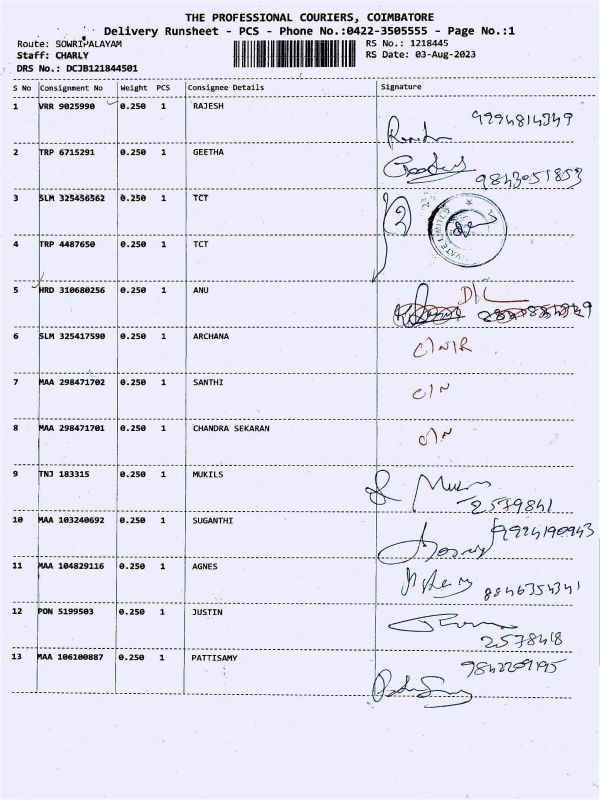 THE PROFESSIONAL COURIERS, COIMBATORE
Delivery Runsheet - PCS - Phone No.:0422-3505555 - Page No.:1
Route: SOWRIPALAYAM
RS No.: 1218445
Staff: CHARLY
RS Date: 03-Aug-2023
DRS No.: DCJB121844501
S No Consignment No Weight PCS Consignee Details Signature
1 VRR 9025990 0.250 1 RAJESH
9994814349
2 TRP 6715291 0.250 1 GEETHA
9843051853
3 SLM 325456562 0.250 1 TCT
4 TRP 4487650 0.250 1 TCT
5 HRD 310680256 0.250 1 ANU D/L
6 SLM 325417590 0.250 1 ARCHANA C/N/R
7 MAA 298471702 0.250 1 SANTHI C/N
8 MAA 298471701 0.250 1 CHANDRA SEKARAN C/N
9 TNJ 183315 0.250 1 MUKILS
2579841
10 MAA 103240692 0.250 1 SUGANTHI
11 MAA 104829116 0.250 1 AGNES
12 PON 5199503 0.250 1 JUSTIN
2578418
13 MAA 106100887 0.250 1 PATTISAMY